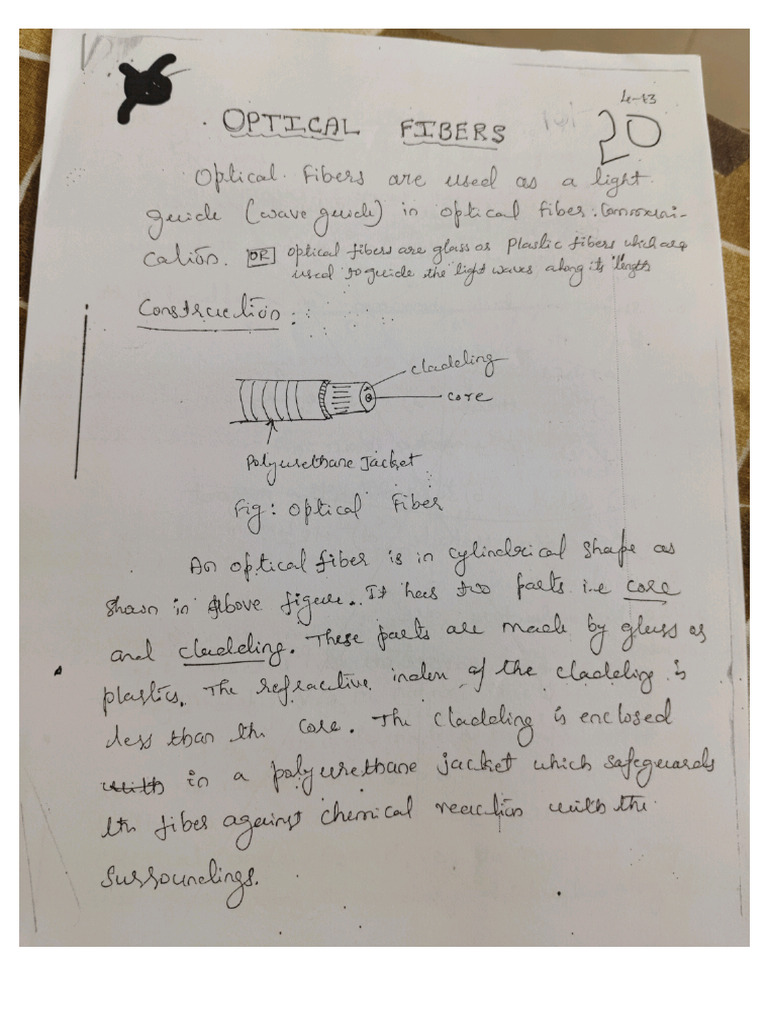 4-13
OPTICAL FIBERS
20
Optical Fibers are used as a light
guide (wave guide) in optical fiber. Communi-
cation. OR optical fibers are glass or Plastic fibers which are
used to guide the light waves along its length
Construction:
cladding
core
Polyurethane Jacket
Fig: Optical Fiber
An optical fiber is in cylindrical shape as
shown in above figure. It has two parts i.e core
and cladding. These parts are made by glass or
plastics. The refractive index of the cladding is
less than the core. The cladding is enclosed
with in a polyurethane jacket which safeguards
the fiber against chemical reaction with the
surroundings.